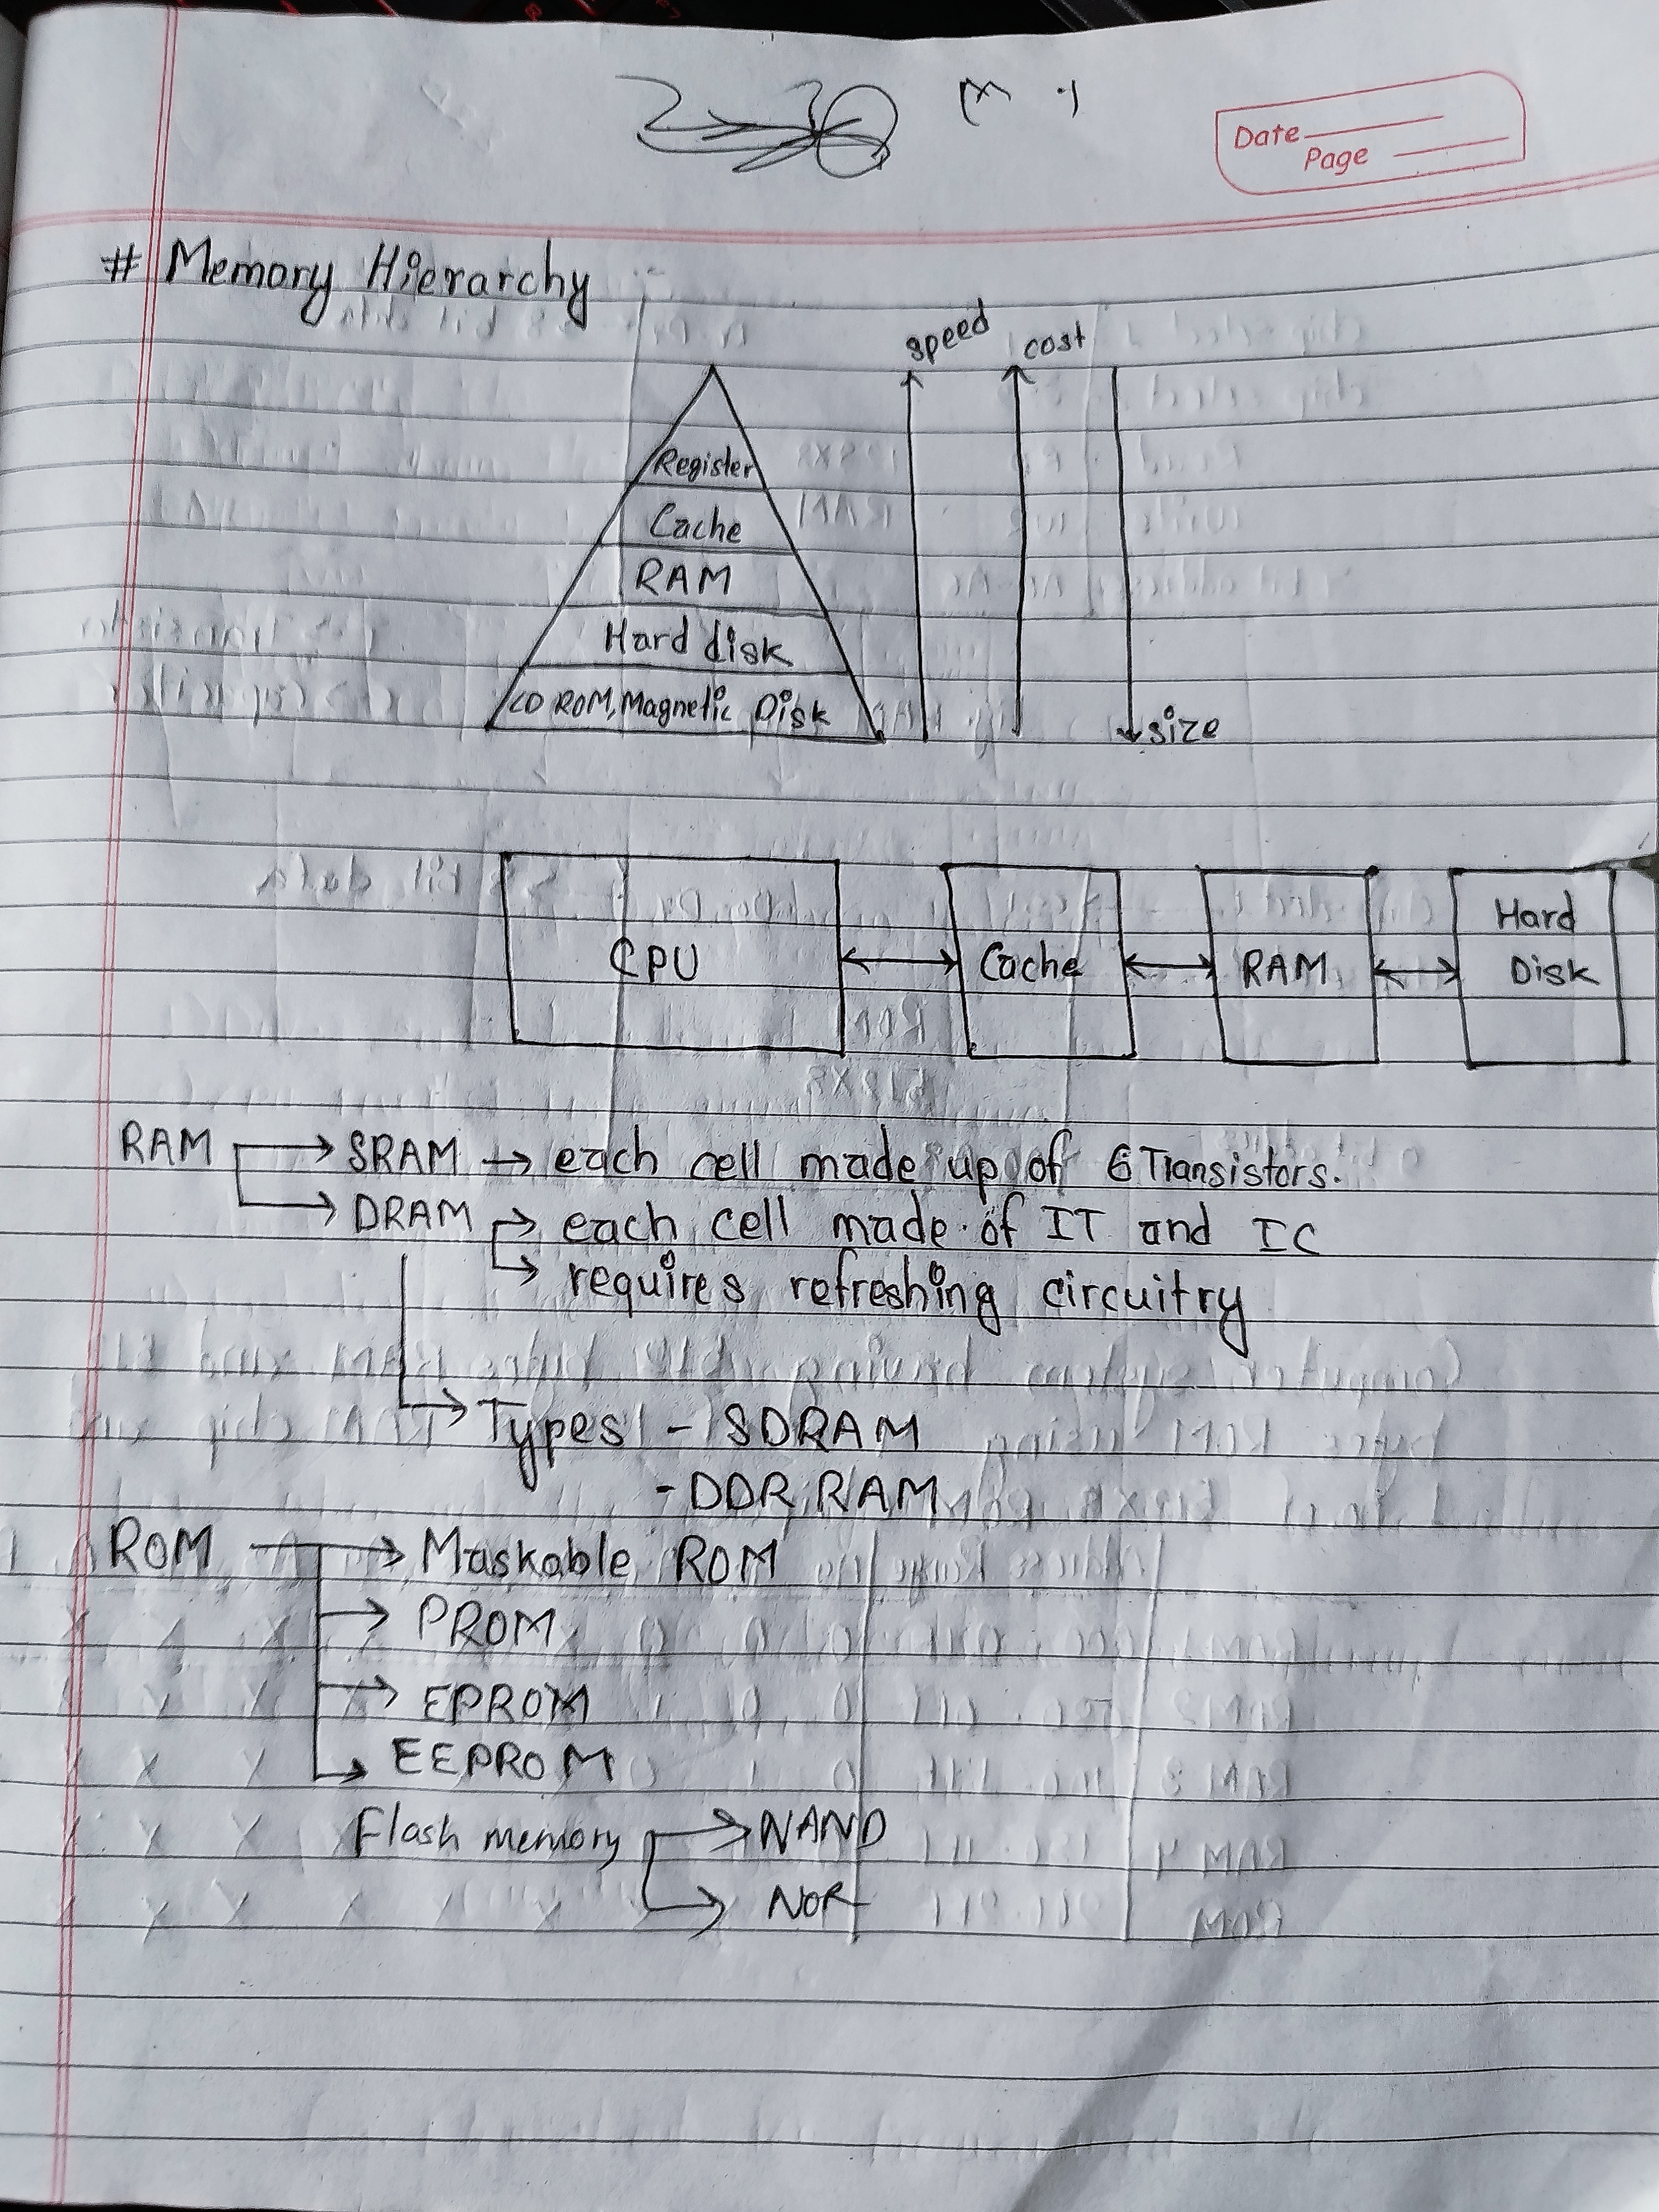 Date
Page
# Memory Hierarchy
speed
cost
Register
Cache
RAM
Hard disk
CD ROM, Magnetic Disk
size
CPU
Cache
RAM
Hard
Disk
RAM → SRAM → each cell made up of 6 Transistors.
→ DRAM → each cell made of IT and IC
→ requires refreshing circuitry
→ Types - SDRAM
- DDR RAM
ROM → Maskable ROM
→ PROM
→ EPROM
→ EEPROM
Flash memory → NAND
→ NOR